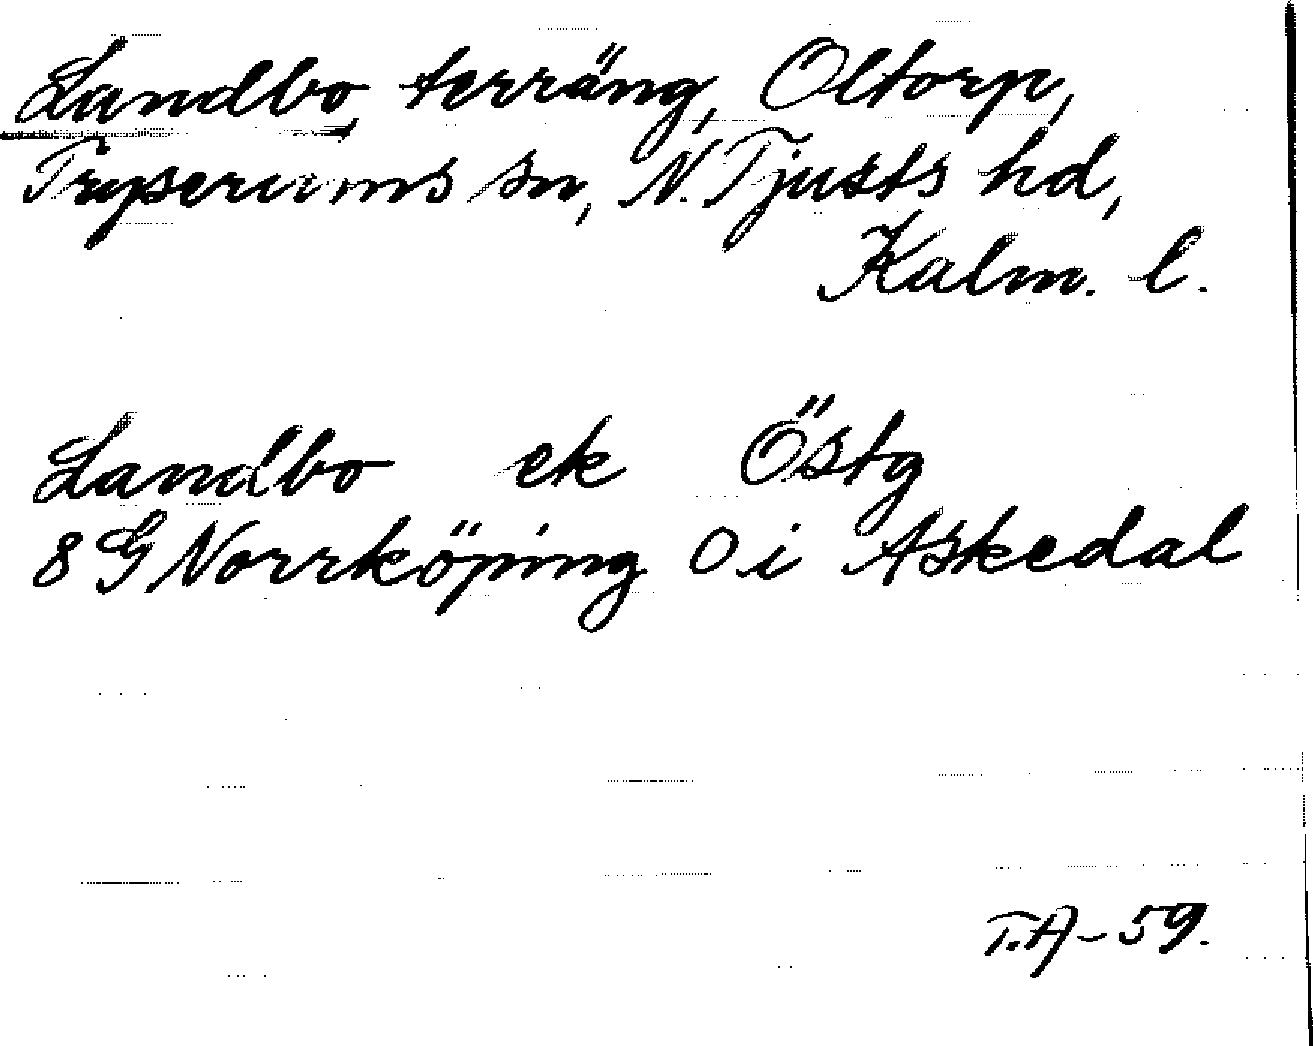 Landbo, terräng, Oltorp,
Tryserums sn, N. Tjusts hd,
Kalm. l.
Landbo ek Östg
8 G Norrköping 0 i Askedal
T.A-59.